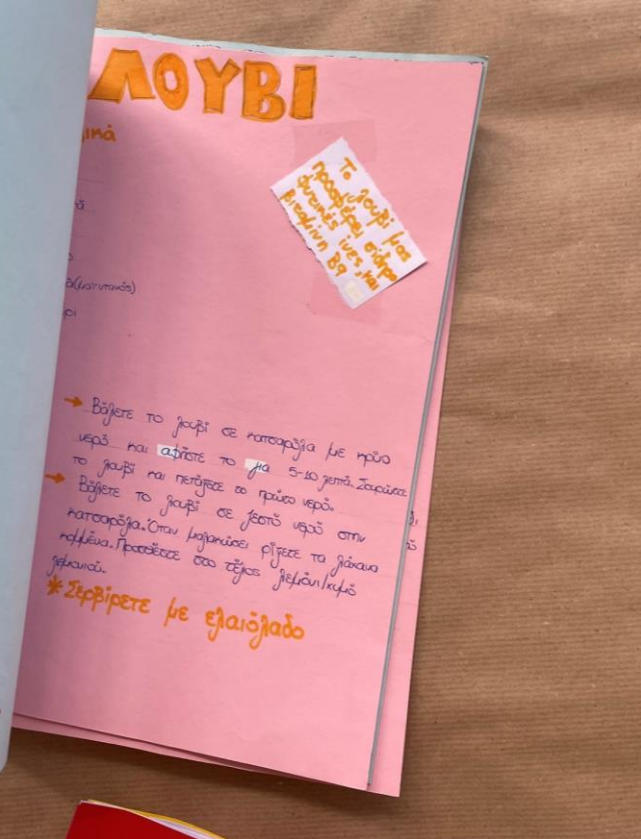 ΛΟΥΒΙ
Το λουβί μας
προσφέρει σίδηρο
φυτικές ίνες, και
βιταμίνη Β9
→ Βάλετε το λουβί σε κατσαρόλα με κρύο
νερό και αφήστε το για 5-10 λεπτά. Σουρώστε
το λουβί και πετάξετε το πρώτο νερό.
→ Βάλετε το λουβί σε ζεστό νερό στην
κατσαρόλα. Όταν μαλακώσει ρίξετε τα λάχανα
κομμένα. Προσθέστε στο τέλος λεμόνι/χυμό
λεμονιού.
*Σερβίρετε με ελαιόλαδο